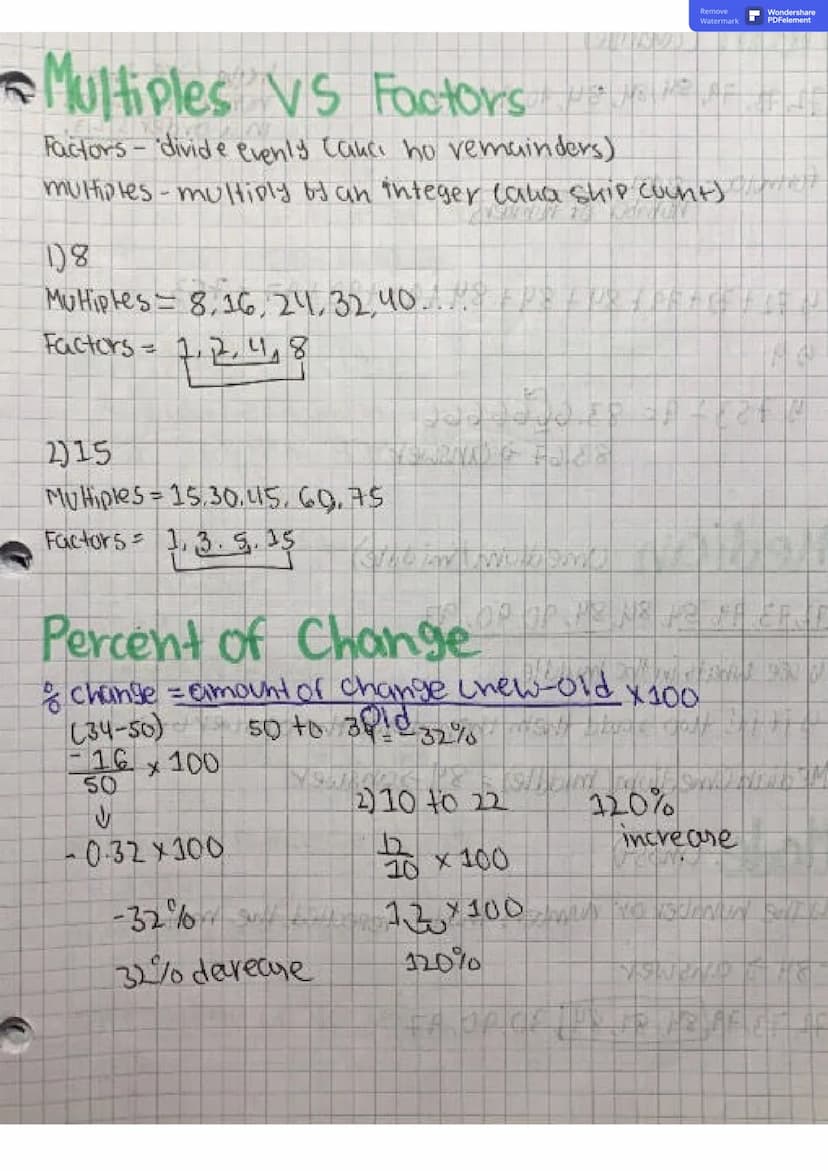 Remove Watermark
Wondershare PDFelement
Multiples VS Factors
Factors - divide evenly (aka no remainders)
multiples - multiply by an integer (aka skip count)
1) 8
Multiples = 8, 16, 24, 32, 40....
Factors = 1, 2, 4, 8
2) 15
Multiples = 15, 30, 45, 60, 75
Factors = 1, 3, 5, 15
Percent of Change
% change = amount of change (new-old × 100
Old
(34-50)
50 to 34 = -32%
-16
50
× 100
↓
-0.32 × 100
-32%
32% decrease
2) 10 to 22
12
10
× 100
1.2 × 100
120%
120%
increase